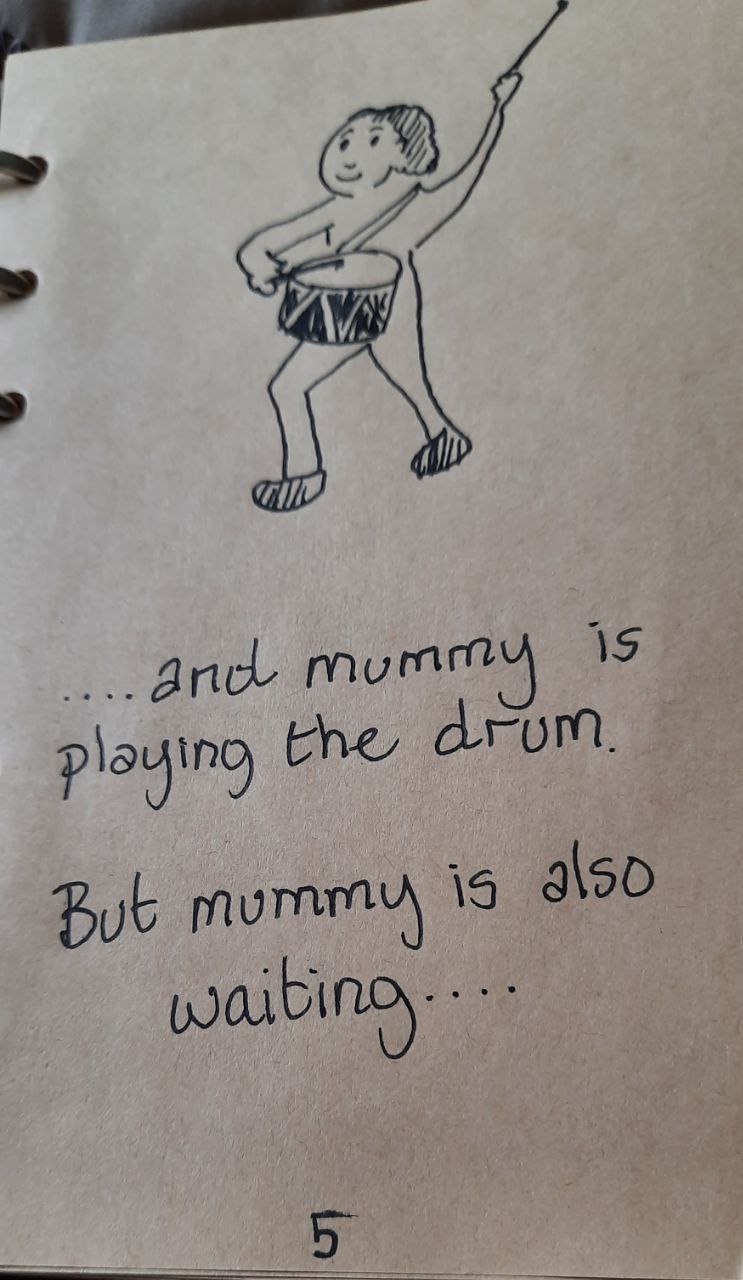 ....and mummy is
playing the drum.
But mummy is also
waiting....
5